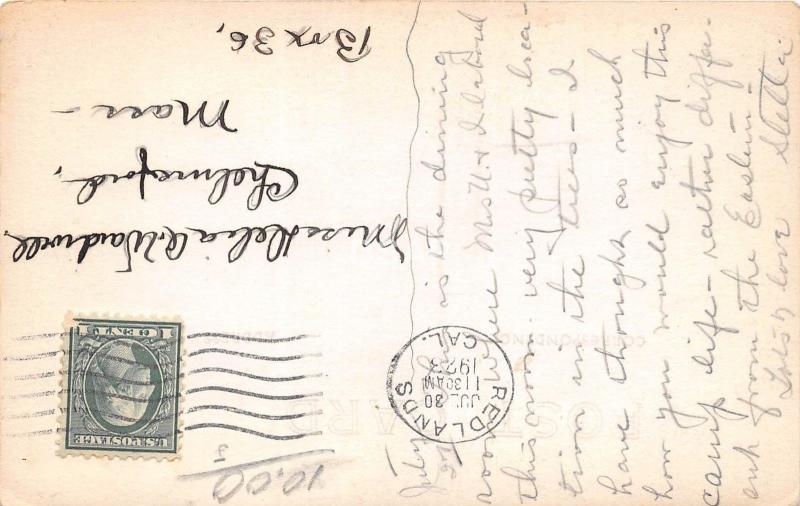 July
This is the dining
room where Mrs U. & I ate out
this noon. very pretty loca-
tion in the trees - I
have thought so much
how you would enjoy this
camp life - rather differ-
ent from the Eastern -
Lots of love Stella
Miss Delia A. Wardwell
Chelmsford,
Mass -
Box 36,
REDLANDS
JUL 30
11 30 AM
1923
CAL.
U.S. POSTAGE
1 CENT 1
POST CARD
CORRESPONDENCE
ADDRESS
10.00